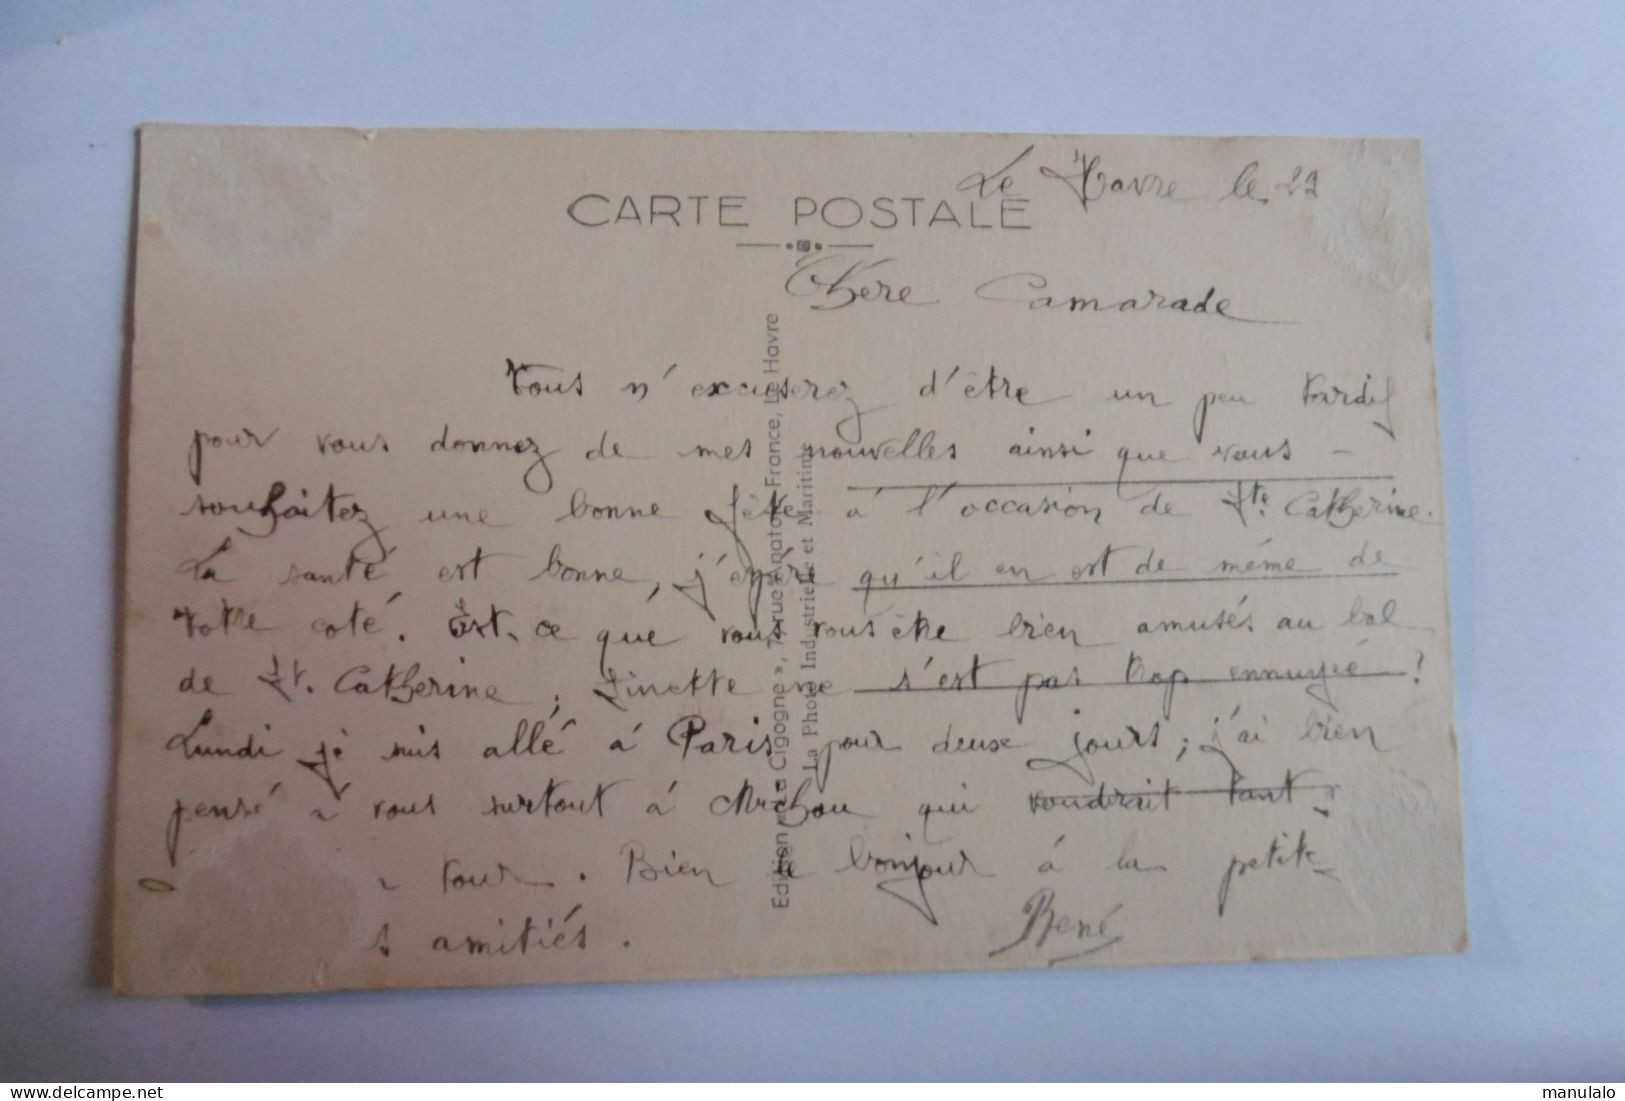 Le Havre le 29
CARTE POSTALE
Chère Camarade
Vous m'excuserez d'être un peu tardif
pour vous donnez de mes nouvelles ainsi que vous
souhaitez une bonne fête à l'occasion de Ste Catherine.
La santé est bonne, j'espère qu'il en est de même de
votre coté. Est-ce que vous vous ête bien amusés au bal
de St. Catherine ; Finette ne s'est pas trop ennuyée ?
Lundi je suis allé à Paris pour deux jours ; j'ai bien
pensé à vous surtout à qui voudrait tant
tour. Bien le bonjour à la petite
s amitiés.
René
Edition « La Cigogne », 7, rue Anatole France, Le Havre
La Photo Industrielle et Maritime
manulalo